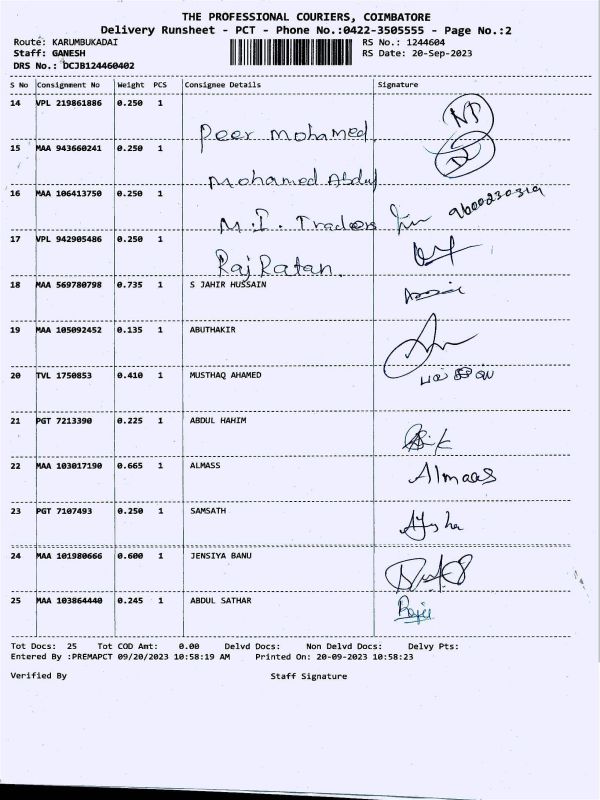 THE PROFESSIONAL COURIERS, COIMBATORE
Delivery Runsheet - PCT - Phone No.:0422-3505555 - Page No.:2
Route: KARUMBUKADAI RS No.: 1244604
Staff: GANESH RS Date: 20-Sep-2023
DRS No.: DCJB124460402
S No Consignment No Weight PCS Consignee Details Signature
14 VPL 219861886 0.250 1 Peer Mohamed
15 MAA 943660241 0.250 1 Mohamed Abdul
16 MAA 106413750 0.250 1 M.I. Traders 9600230319
17 VPL 942905486 0.250 1 Raj Ratan.
18 MAA 569780798 0.735 1 S JAHIR HUSSAIN
19 MAA 105092452 0.135 1 ABUTHAKIR
20 TVL 1750853 0.410 1 MUSTHAQ AHAMED
21 PGT 7213390 0.225 1 ABDUL HAHIM
22 MAA 103017190 0.665 1 ALMASS Almaas
23 PGT 7107493 0.250 1 SAMSATH Aysha
24 MAA 101980666 0.600 1 JENSIYA BANU
25 MAA 103864440 0.245 1 ABDUL SATHAR
Tot Docs: 25 Tot COD Amt: 0.00 Delvd Docs: Non Delvd Docs: Delvy Pts:
Entered By :PREMAPCT 09/20/2023 10:58:19 AM Printed On: 20-09-2023 10:58:23
Verified By Staff Signature